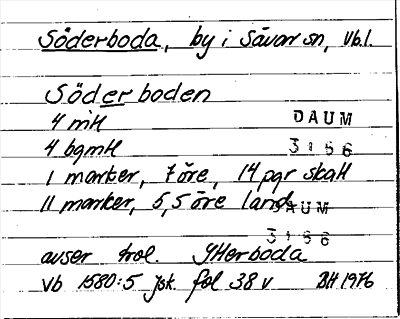 Söderboda, by i Sävar sn, Vb.l.
Söderboden
4 mtt
4 bgmtt
DAUM
3156
1 marker, 7 öre, 14 pgr skatt
11 marker, 5,5 öre land
DAUM
3156
avser trol. Ytterboda
Vb 1580:5 jsk. fol 38 v BH 1976